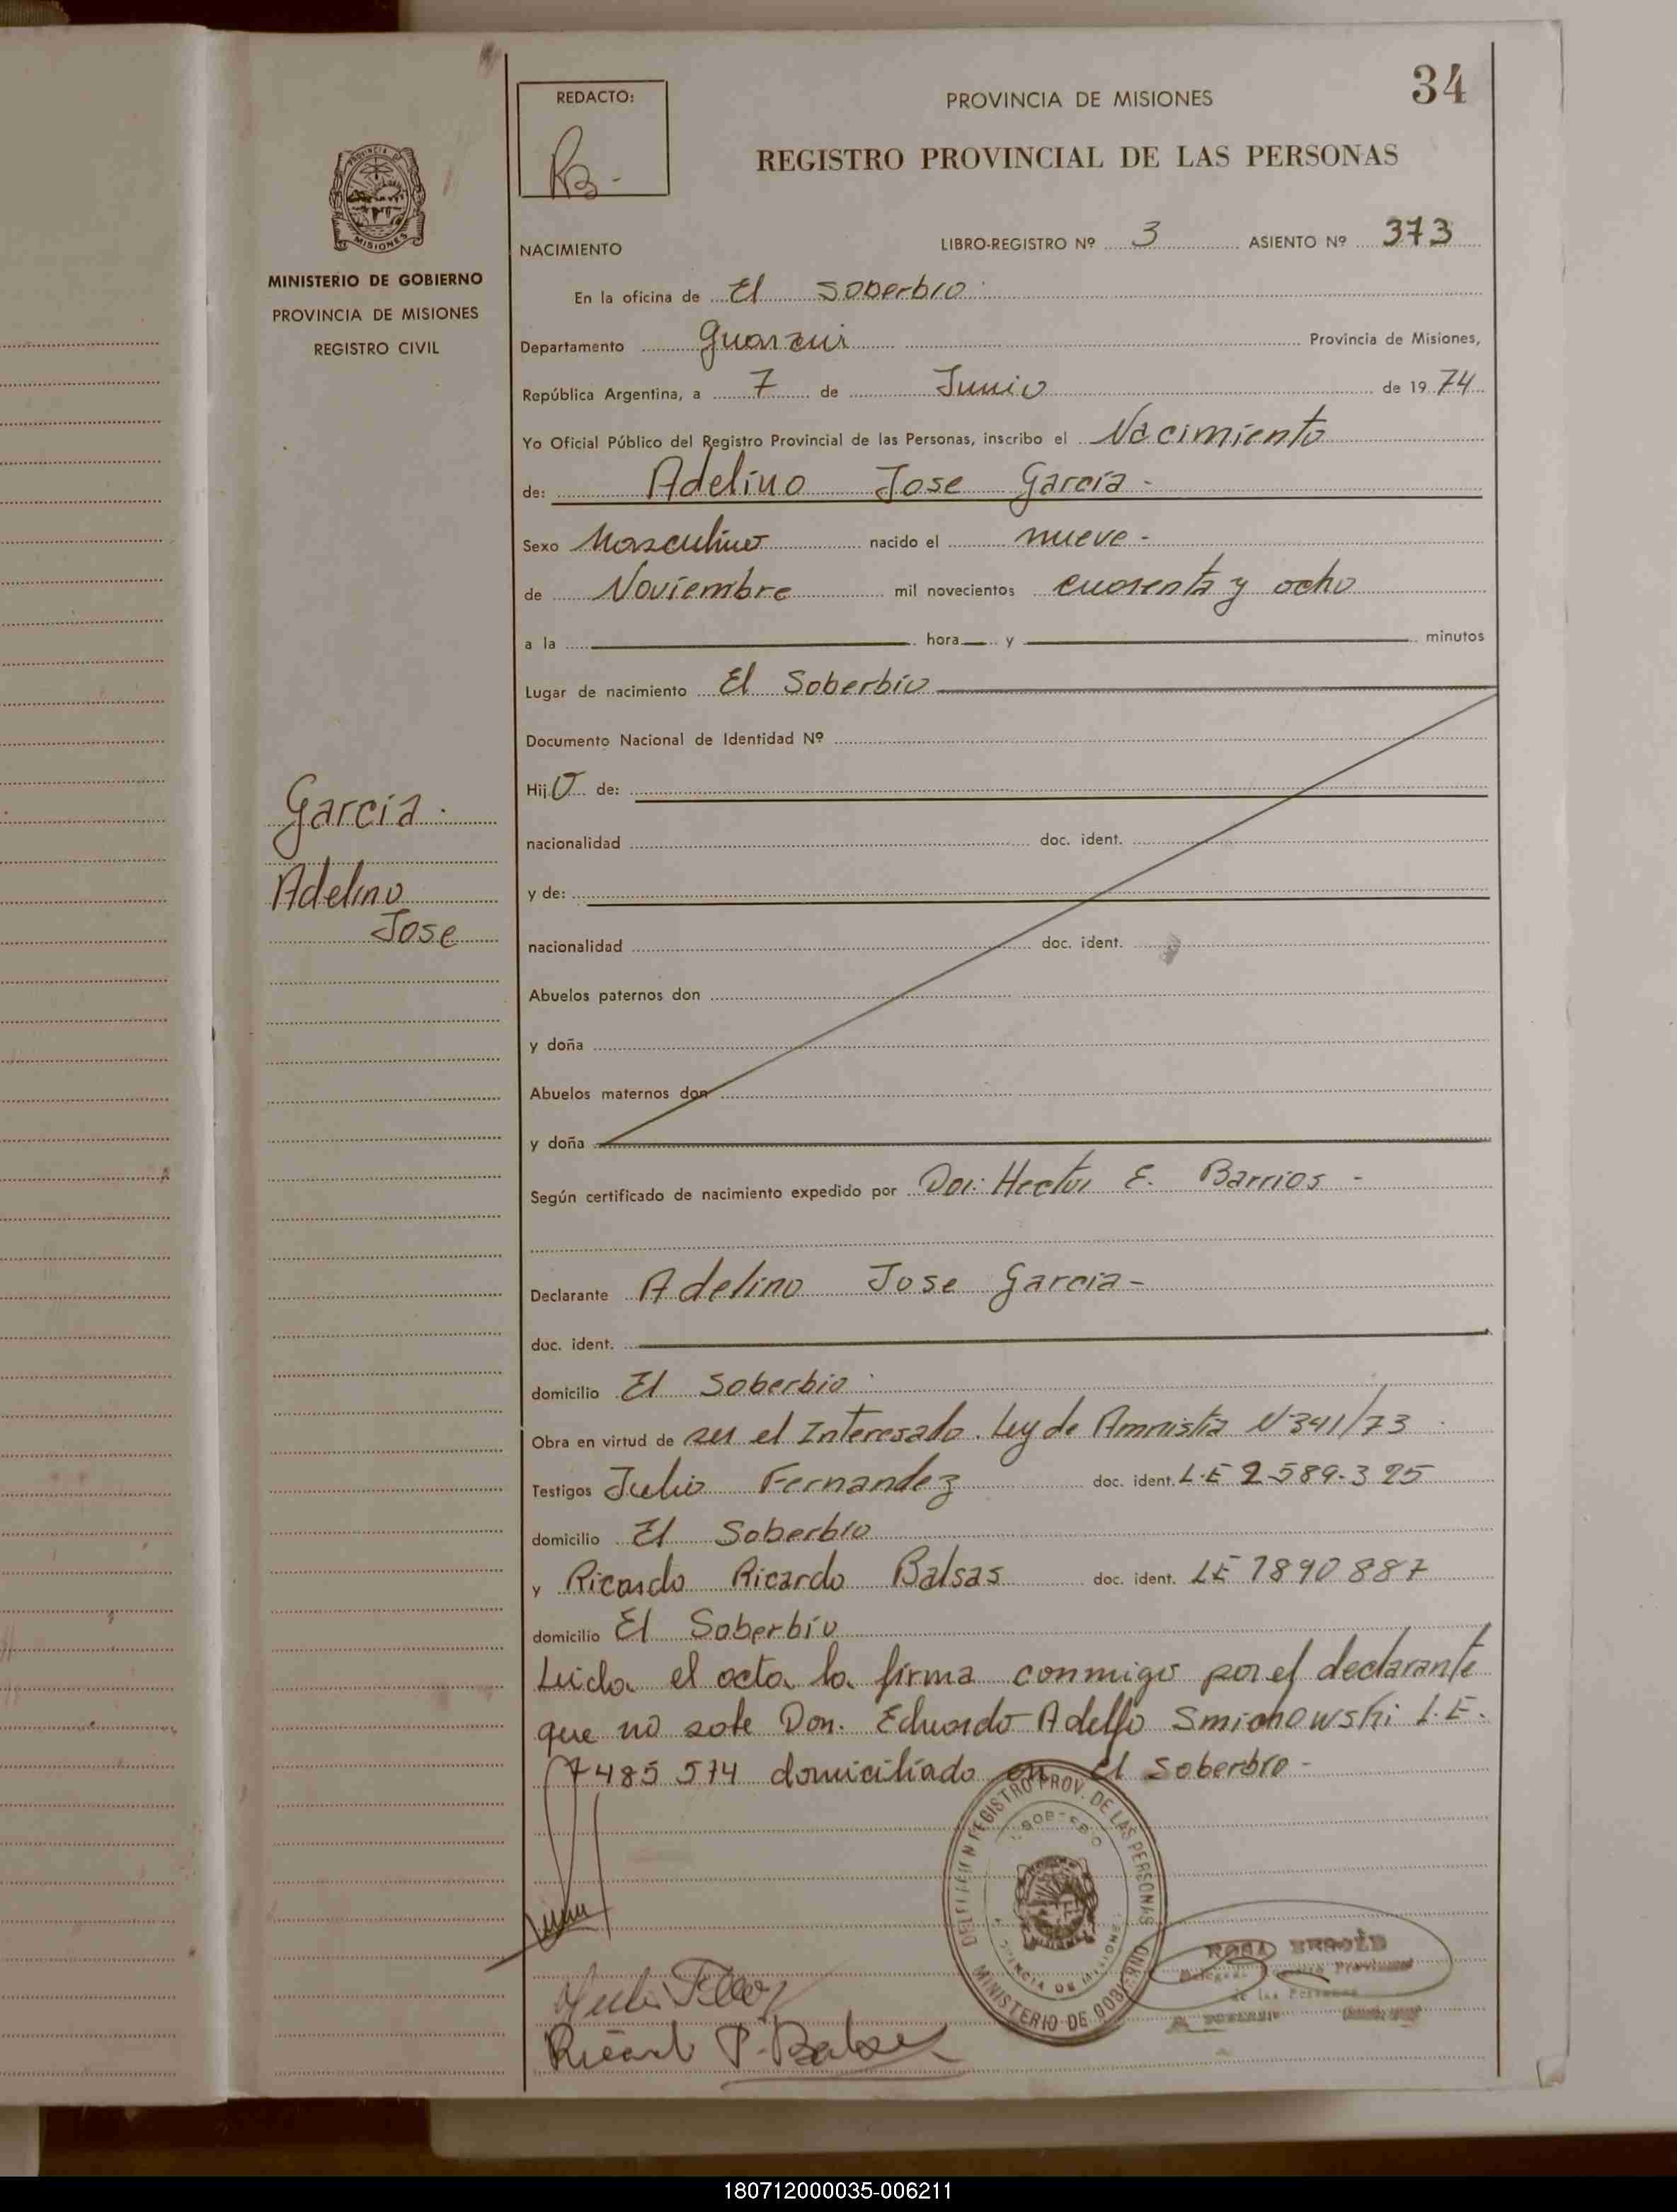 34
REDACTO:
PROVINCIA DE MISIONES
REGISTRO PROVINCIAL DE LAS PERSONAS
PROVINCIA DE
MISIONES
MINISTERIO DE GOBIERNO
PROVINCIA DE MISIONES
REGISTRO CIVIL
NACIMIENTO LIBRO-REGISTRO Nº 3 ASIENTO Nº 373
En la oficina de El Soberbio
Departamento Guarani Provincia de Misiones,
República Argentina, a 7 de Junio de 1974
Yo Oficial Público del Registro Provincial de las Personas, inscribo el Nacimiento
de: Adelino Jose Garcia -
Sexo Masculino nacido el nueve -
de Noviembre mil novecientos cuarenta y ocho
a la hora y minutos
Lugar de nacimiento El Soberbio
Documento Nacional de Identidad Nº
Hijo de:
nacionalidad doc. ident.
y de:
nacionalidad doc. ident.
Garcia
Adelino
Jose
Abuelos paternos don
y doña
Abuelos maternos don
y doña
Según certificado de nacimiento expedido por Dor: Hector E. Barrios -
Declarante Adelino Jose Garcia -
doc. ident.
domicilio El Soberbio
Obra en virtud de ser el Interesado. Ley de Amnistia Nº 341/73
Testigos Julio Fernandez doc. ident. L.E 2.589.325
domicilio El Soberbio
y Ricardo Ricardo Balsas doc. ident. LE 7890887
domicilio El Soberbio
Leida el acta la firma conmigo por el declarante
que no sabe Don. Eduardo Adolfo Smichowski L.E.
7485574 domiciliado en El Soberbio -
REGISTRO PROV. DE LAS PERSONAS
MINISTERIO DE GOBIERNO
180712000035-006211